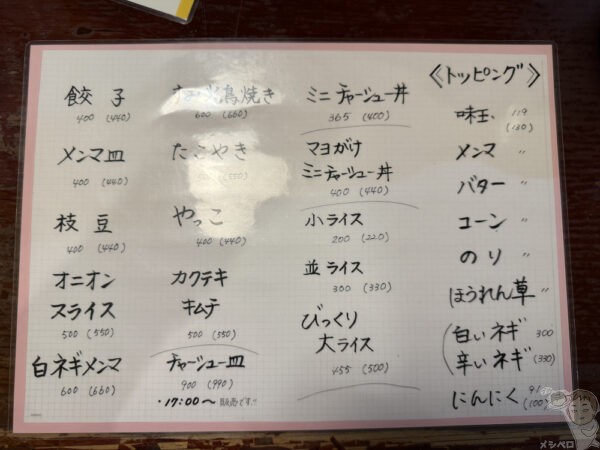 餃子
400 (440)
メンマ皿
400 (440)
枝豆
400 (440)
オニオン
スライス
500 (550)
白ネギメンマ
600 (660)
鳥焼き
600 (660)
たこやき
やっこ
400 (440)
カクテキ
キムチ
500 (550)
チャーシュー皿
900 (990)
・17:00〜 販売です!!
ミニ チャーシュー丼
365 (400)
マヨがけ
ミニチャーシュー丼
400 (440)
小ライス
200 (220)
並ライス
300 (330)
びっくり
大ライス
455 (500)
《トッピング》
味玉、 119
(130)
メンマ 〃
バター 〃
コーン 〃
のり 〃
ほうれん草 〃
(白いネギ 300
辛いネギ (330)
にんにく 91
(100)
メシペロ